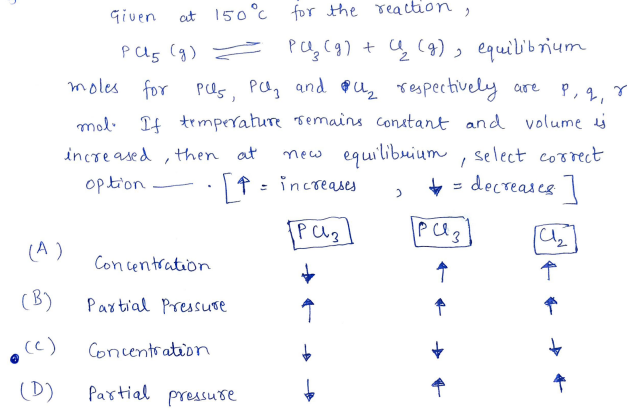 Given at 150°C for the reaction,
PCl5 (g) ⇌ PCl3 (g) + Cl2 (g), equilibrium
moles for PCl5, PCl3 and Cl2 respectively are p, q, r
mol. If temperature remains constant and volume is
increased, then at new equilibrium, select correct
option —. [↑ = increases , ↓ = decreases]
PCl3 PCl3 Cl2
(A) Concentration ↓ ↑ ↑
(B) Partial Pressure ↑ ↑ ↑
(C) Concentration ↓ ↓ ↓
(D) Partial pressure ↓ ↑ ↑